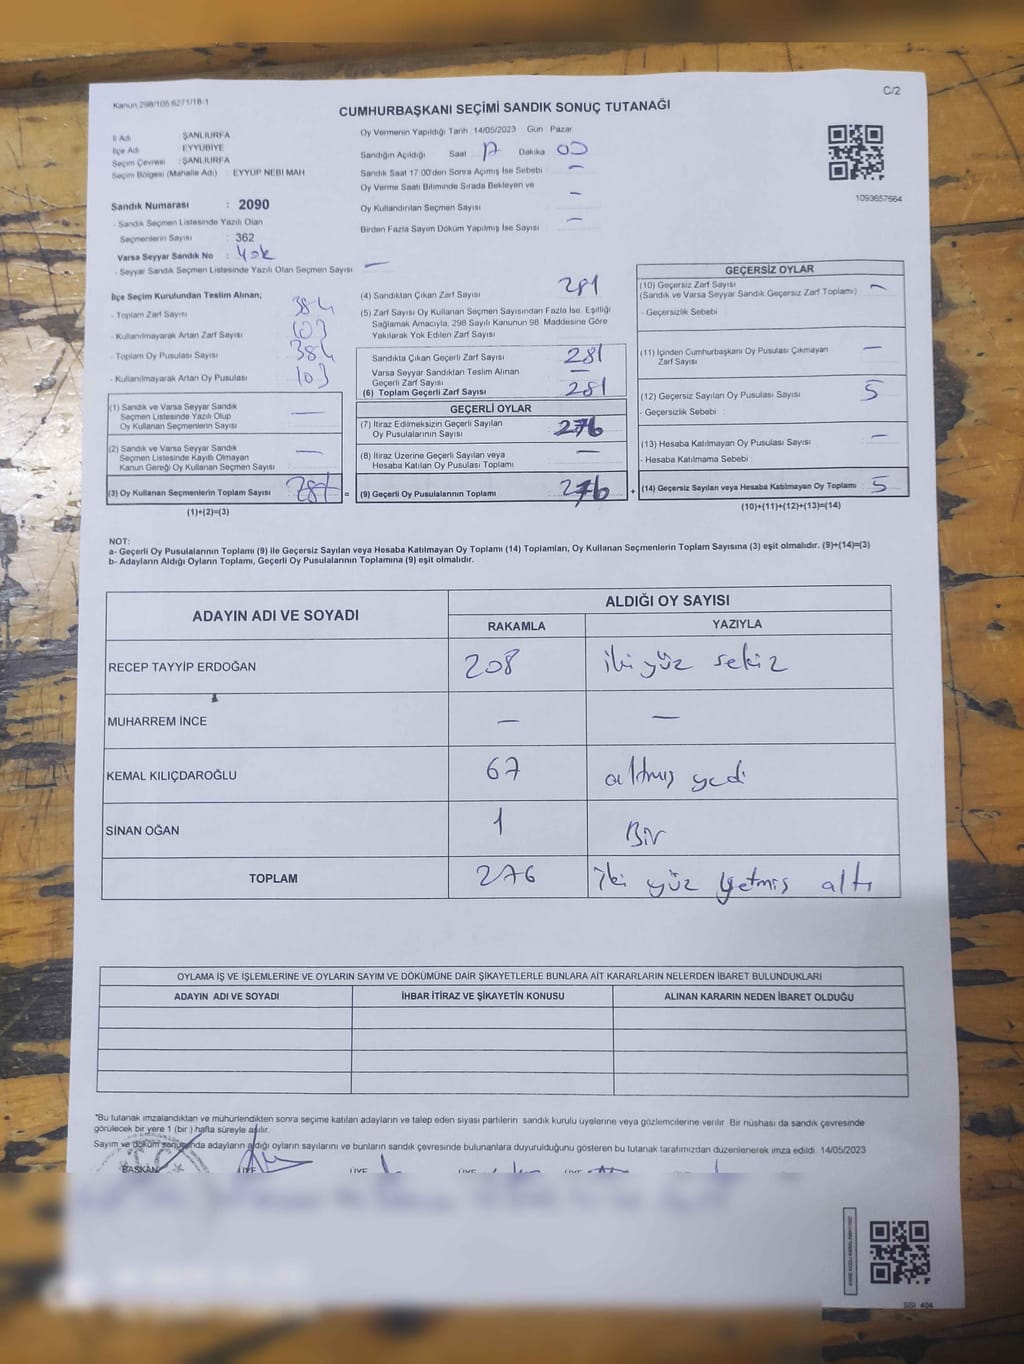 Kanun 298/105 6271/18-1
C/2
CUMHURBAŞKANI SEÇİMİ SANDIK SONUÇ TUTANAĞI
İl Adı : ŞANLIURFA
İlçe Adı : EYYÜBİYE
Seçim Çevresi : ŞANLIURFA
Seçim Bölgesi (Mahalle Adı) : EYYÜP NEBİ MAH
Sandık Numarası : 2090
- Sandık Seçmen Listesinde Yazılı Olan
Seçmenlerin Sayısı : 362
Varsa Seyyar Sandık No : Yok
- Seyyar Sandık Seçmen Listesinde Yazılı Olan Seçmen Sayısı —
Oy Vermenin Yapıldığı Tarih :14/05/2023 Gün : Pazar
Sandığın Açıldığı Saat 17 Dakika 00
Sandık Saat 17.00'den Sonra Açılmış İse Sebebi : —
Oy Verme Saati Bitiminde Sırada Bekleyen ve
Oy Kullandırılan Seçmen Sayısı : —
Birden Fazla Sayım Döküm Yapılmış İse Sayısı : —
1093657664
İlçe Seçim Kurulundan Teslim Alınan;
- Toplam Zarf Sayısı 384
- Kullanılmayarak Artan Zarf Sayısı 103
- Toplam Oy Pusulası Sayısı 384
- Kullanılmayarak Artan Oy Pusulası 103
(1) Sandık ve Varsa Seyyar Sandık
Seçmen Listesinde Yazılı Olup
Oy Kullanan Seçmenlerin Sayısı —
(2) Sandık ve Varsa Seyyar Sandık
Seçmen Listesinde Kayıtlı Olmayan
Kanun Gereği Oy Kullanan Seçmen Sayısı —
(3) Oy Kullanan Seçmenlerin Toplam Sayısı 281 =
(1)+(2)=(3)
(4) Sandıktan Çıkan Zarf Sayısı 281
(5) Zarf Sayısı Oy Kullanan Seçmen Sayısından Fazla İse, Eşitliği
Sağlamak Amacıyla, 298 Sayılı Kanunun 98. Maddesine Göre
Yakılarak Yok Edilen Zarf Sayısı
Sandıkta Çıkan Geçerli Zarf Sayısı 281
Varsa Seyyar Sandıktan Teslim Alınan
Geçerli Zarf Sayısı —
(6) Toplam Geçerli Zarf Sayısı 281
GEÇERLİ OYLAR
(7) İtiraz Edilmeksizin Geçerli Sayılan
Oy Pusulalarının Sayısı 276
(8) İtiraz Üzerine Geçerli Sayılan veya
Hesaba Katılan Oy Pusulası Toplamı —
(9) Geçerli Oy Pusulalarının Toplamı 276 +
GEÇERSİZ OYLAR
(10) Geçersiz Zarf Sayısı
(Sandık ve Varsa Seyyar Sandık Geçersiz Zarf Toplamı) —
- Geçersizlik Sebebi
(11) İçinden Cumhurbaşkanı Oy Pusulası Çıkmayan
Zarf Sayısı —
(12) Geçersiz Sayılan Oy Pusulası Sayısı 5
- Geçersizlik Sebebi :
(13) Hesaba Katılmayan Oy Pusulası Sayısı —
- Hesaba Katılmama Sebebi :
(14) Geçersiz Sayılan veya Hesaba Katılmayan Oy Toplamı 5
(10)+(11)+(12)+(13)=(14)
NOT:
a- Geçerli Oy Pusulalarının Toplamı (9) ile Geçersiz Sayılan veya Hesaba Katılmayan Oy Toplamı (14) Toplamları, Oy Kullanan Seçmenlerin Toplam Sayısına (3) eşit olmalıdır. (9)+(14)=(3)
b- Adayların Aldığı Oyların Toplamı, Geçerli Oy Pusulalarının Toplamına (9) eşit olmalıdır.
ADAYIN ADI VE SOYADI
ALDIĞI OY SAYISI
RAKAMLA YAZIYLA
RECEP TAYYİP ERDOĞAN 208 iki yüz sekiz
MUHARREM İNCE — —
KEMAL KILIÇDAROĞLU 67 altmış yedi
SİNAN OĞAN 1 Bir
TOPLAM 276 iki yüz yetmiş altı
OYLAMA İŞ VE İŞLEMLERİNE VE OYLARIN SAYIM VE DÖKÜMÜNE DAİR ŞİKAYETLERLE BUNLARA AİT KARARLARIN NELERDEN İBARET BULUNDUKLARI
ADAYIN ADI VE SOYADI İHBAR İTİRAZ VE ŞİKAYETİN KONUSU ALINAN KARARIN NEDEN İBARET OLDUĞU
*Bu tutanak imzalandıktan ve mühürlendikten sonra seçime katılan adayların ve talep eden siyasi partilerin sandık kurulu üyelerine veya gözlemcilerine verilir. Bir nüshası da sandık çevresinde
görülecek bir yere 1 (bir ) hafta süreyle asılır.
Sayım ve döküm sonucunda adayların aldığı oyların sayılarını ve bunların sandık çevresinde bulunanlara duyurulduğunu gösteren bu tutanak tarafımızdan düzenlenerek imza edildi. 14/05/2023
BAŞKAN ÜYE ÜYE ÜYE ÜYE
SSİ 404